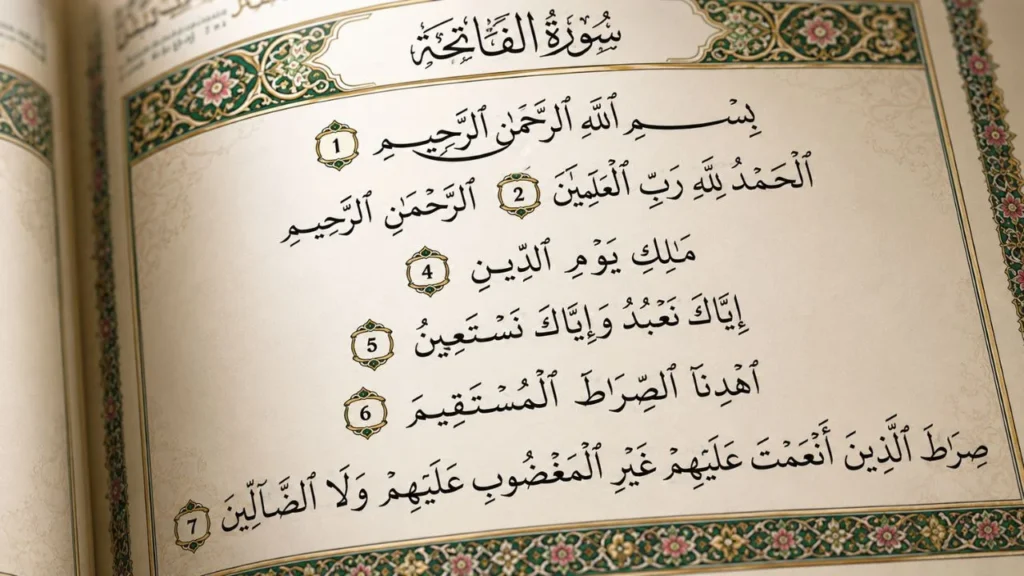 سُورَةُ الفَاتِحَة
بِسْمِ ٱللَّهِ ٱلرَّحْمَٰنِ ٱلرَّحِيمِ 1
ٱلْحَمْدُ لِلَّهِ رَبِّ ٱلْعَٰلَمِينَ 2 ٱلرَّحْمَٰنِ ٱلرَّحِيمِ
مَٰلِكِ يَوْمِ ٱلدِّينِ 4
إِيَّاكَ نَعْبُدُ وَإِيَّاكَ نَسْتَعِينُ 5
ٱهْدِنَا ٱلصِّرَاطَ ٱلْمُسْتَقِيمَ 6
صِرَاطَ ٱلَّذِينَ أَنْعَمْتَ عَلَيْهِمْ غَيْرِ ٱلْمَغْضُوبِ عَلَيْهِمْ وَلَا ٱلضَّآلِّينَ 7